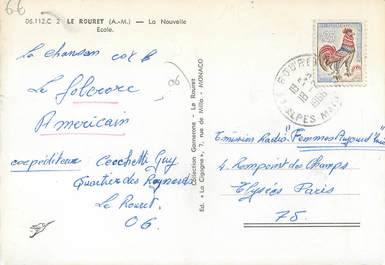 66
06.112.C 2 LE ROURET (A.-M.) — La Nouvelle
Ecole.
La chanson
Le folcrore
Americain
coexpéditeur Cecchetti Guy
Quartier des
Le Rouret
06.
06
Collection Gomerone - Le Rouret
Ed. « La Cigogne », 7, rue de Millo - MONACO
ALPES MMES
Emission Radio "Femmes Aujourd'hui"
4. Rompoint des Champs
Elysées Paris
75.